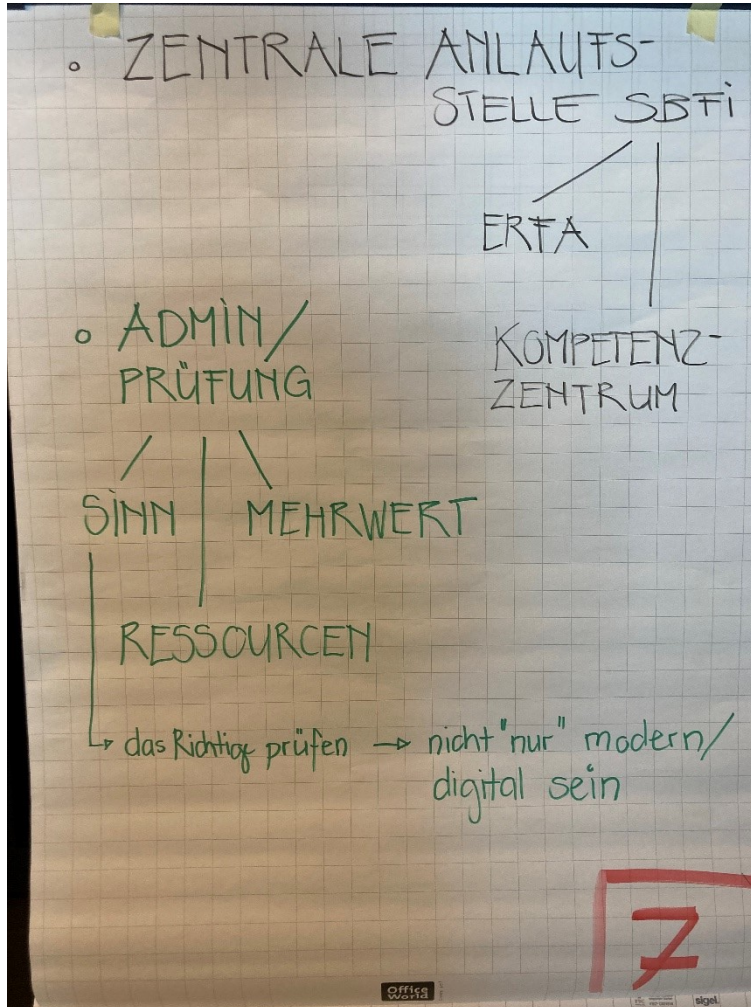 • ZENTRALE ANLAUFS-
STELLE SBFi
ERFA
KOMPETENZ-
ZENTRUM
• ADMiN/
PRÜFUNG
SiNN
MEHRWERT
RESSOURCEN
↳ das Richtige prüfen → nicht "nur" modern/
digital sein
7
Office
World
sigel